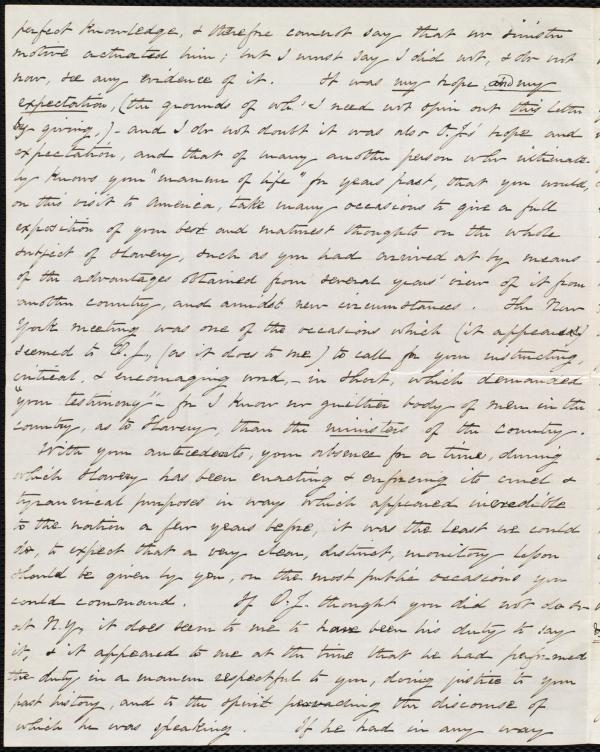 perfect knowledge, & therefore cannot say that no sinister
motive actuated him; but I must say I did not, & do not
now, see any evidence of it. It was my hope and my
expectation, (the grounds of wh. I need not open out this letter
by giving,) - and I do not doubt it was also O.J's hope and
expectation, and that of many another person who intimate-
ly knows your "manner of life" for years past, that you would,
on this visit to America, take many occasions to give a full
exposition of your best and maturest thoughts on the whole
subject of Slavery, such as you had arrived at by means
of the advantages obtained from several years' view of it from
another country, and amidst new circumstances. The New
York meeting was one of the occasions which (it appeared)
seemed to O.J., (as it does to me) to call for your instructing,
critical, & encouraging word, - in short, which demanded
"your testimony" - for I know no guiltier body of men in the
country, as to Slavery, than the ministers of the country.
With your antecedents, your absence for a time, during
which Slavery has been enacting & enforcing its cruel &
tyrannical purposes in way which appeared incredible
to the nation a few years before, it was the least we could
do, to expect that a very clear, distinct, monitory lesson
should be given by you, on the most public occasions you
could command. If O.J. thought you did not do so
at N.Y. it does seem to me to have been his duty to say
it, & it appeared to me at the time that he had performed
the duty in a manner respectful to you, doing justice to your
past history, and to the spirit pervading the discourse of
which he was speaking. If he had in any way